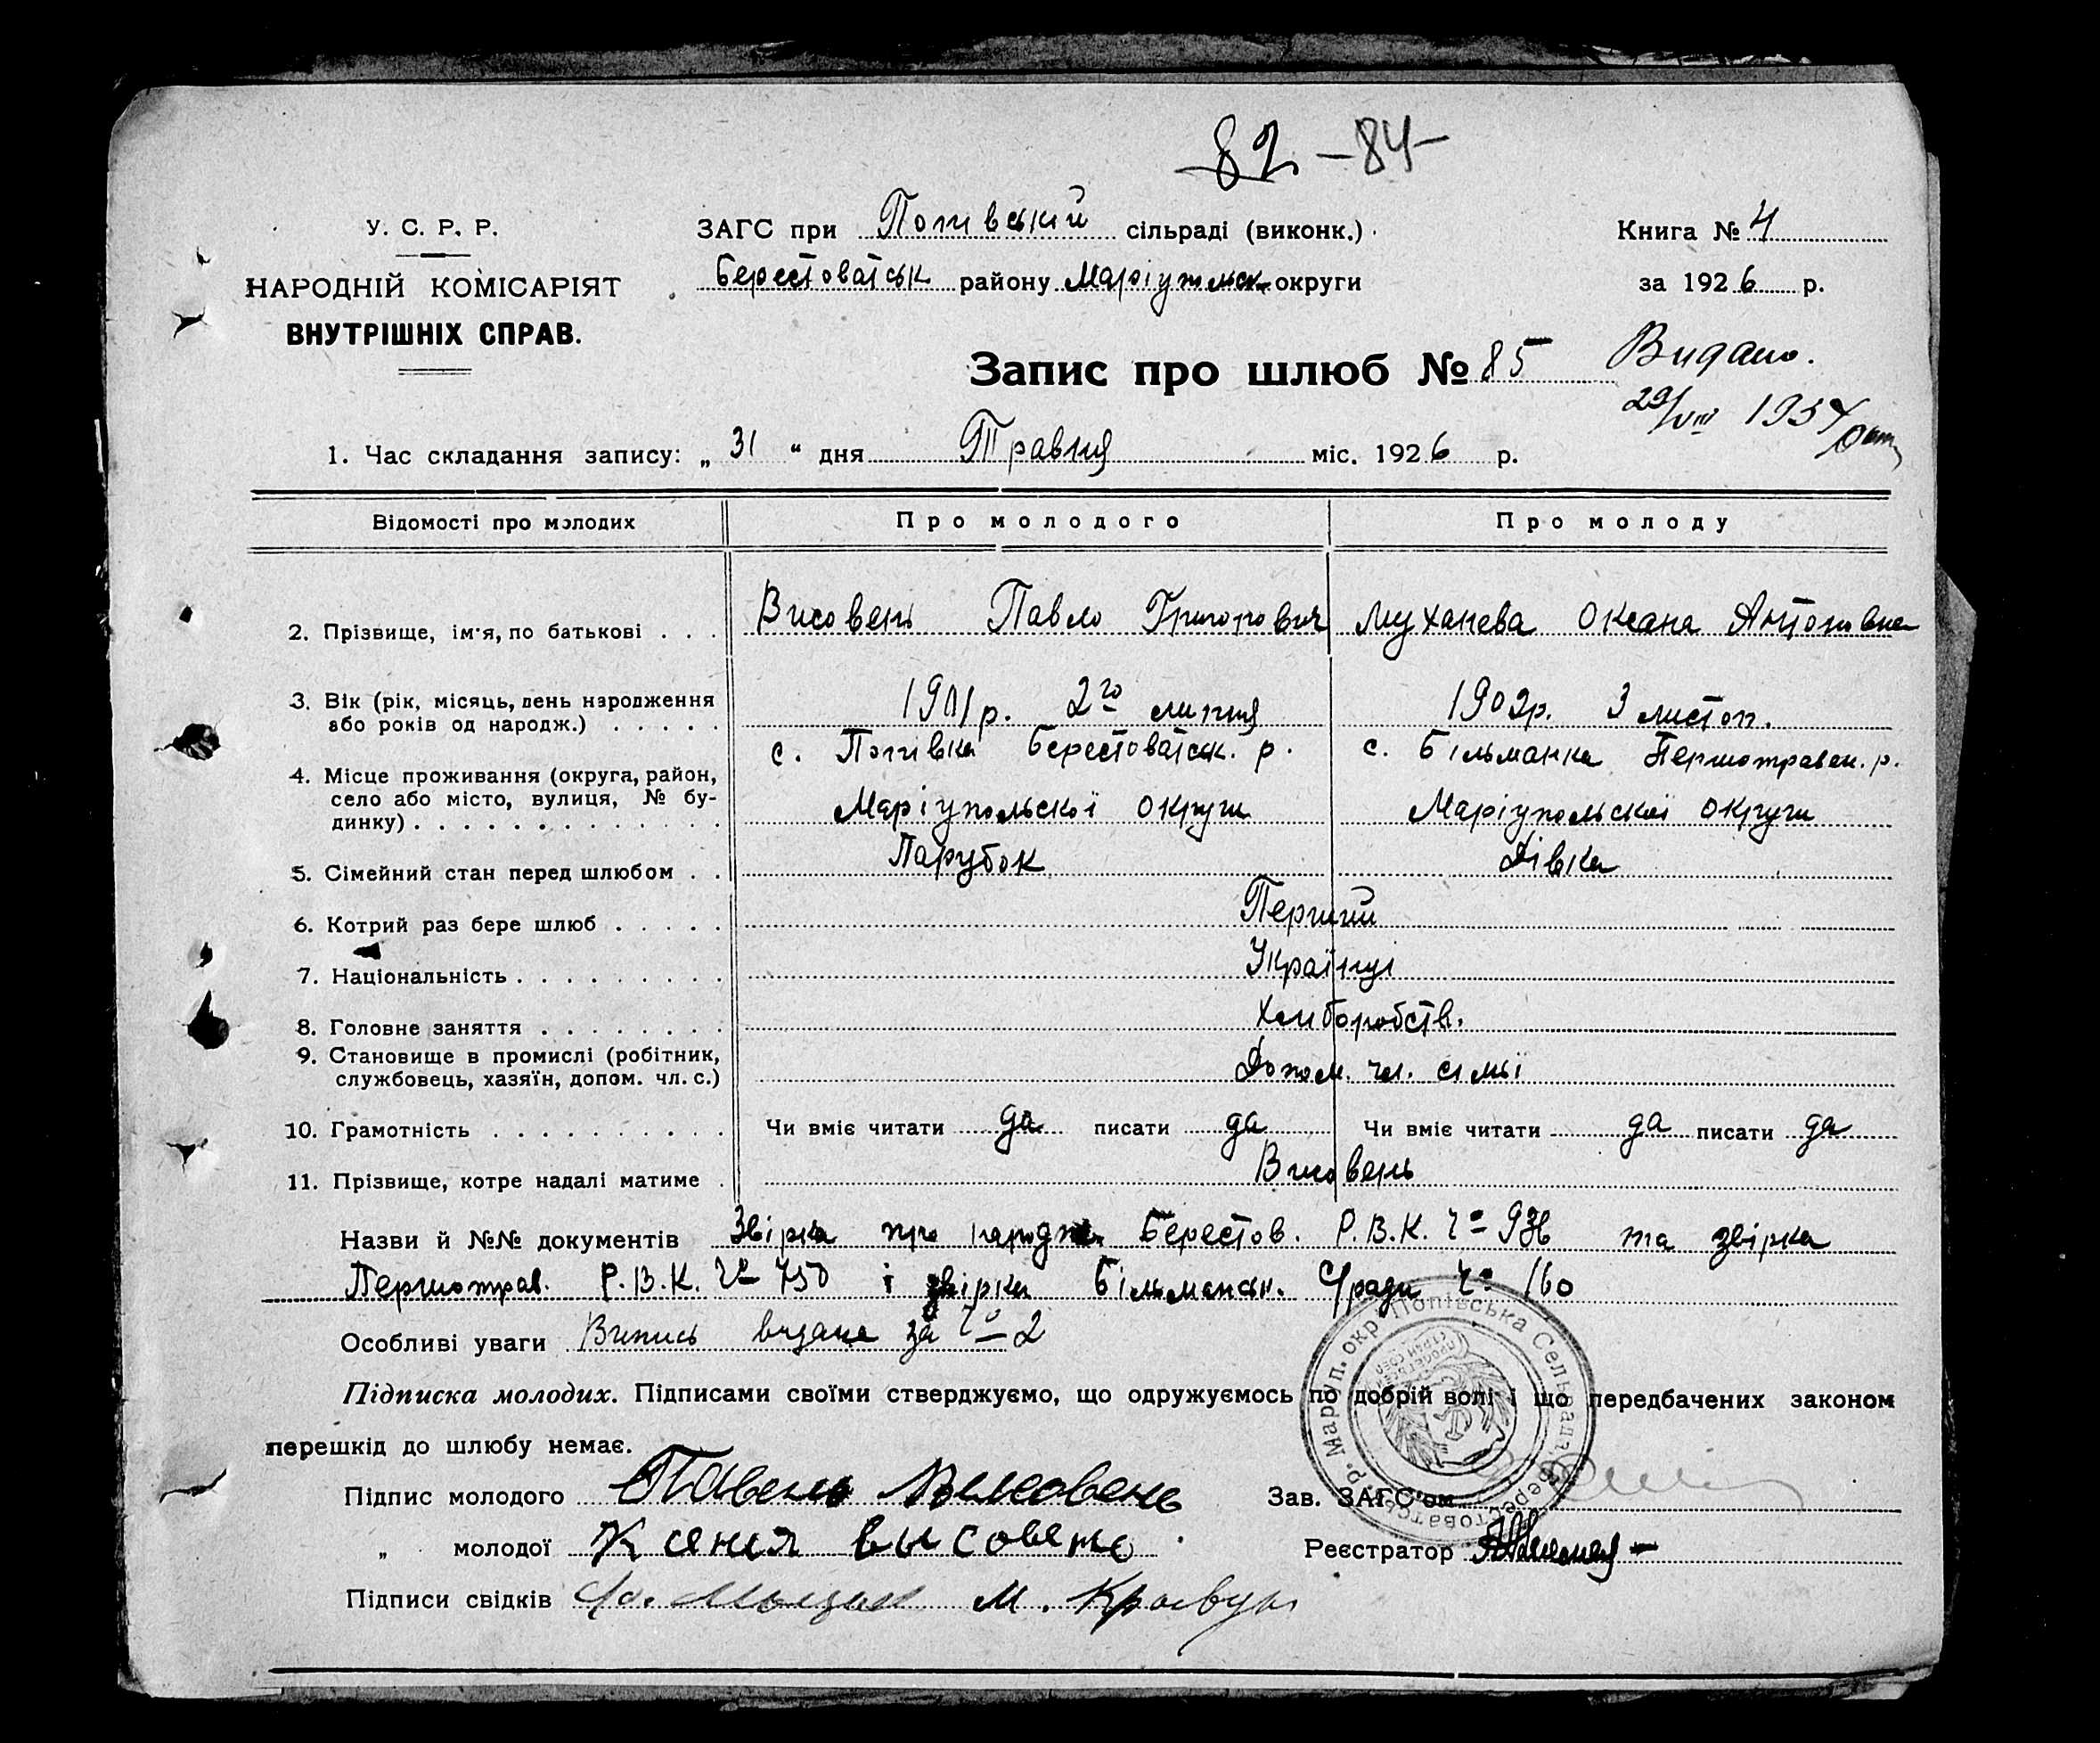 82 - 84 -
У. С. Р. Р.
НАРОДНІЙ КОМІСАРІЯТ
ВНУТРІШНІХ СПРАВ.
ЗАГС при Попівській сільраді (виконк.)
Берестоватськ району Маріупольськ. округи
Книга № 4
за 1926 р.
Запис про шлюб № 85
Видано.
29/VIII 1934
1. Час складання запису: „ 31 “ дня Травня міс. 1926 р.
Відомості про молодих Про молодого Про молоду
2. Прізвище, ім'я, по батькові . . . Висовень Павло Григорович Муханева Оксана Антоновна
3. Вік (рік, місяць, день народження 1901р. 2го липня 1902р. 3 листоп.
або років од народж.) . . . . .
с. Попівка Берестоватськ. р. с. Більманка Першотравен. р.
4. Місце проживання (округа, район,
село або місто, вулиця, № бу- Маріупольскої округи Маріупольскої округи
динку) . . . . . . . . . . . . .
5. Сімейний стан перед шлюбом . . Парубок Дівка
6. Котрий раз бере шлюб . . . . . Перший
7. Національність . . . . . . . . . Українці
8. Головне заняття . . . . . . . . Хлиборобств.
9. Становище в промислі (робітник,
службовець, хазяїн, допом. чл. с.) Допом. чл. сімьї
10. Грамотність . . . . . . . . . . Чи вміє читати да писати да Чи вміє читати да писати да
11. Прізвище, котре надалі матиме . Висовень
Назви й №№ документів Звірка про народж. Берестов. Р.В.К. Чо та звірка
Першотрав. Р.В.К. Чо 750 і звірка Більманськ. С/ради Чо 160
Особливі уваги Випись видана за Чо 2
Підписка молодих. Підписами своїми стверджуємо, що одружуємось по добрій волі і що передбачених законом
перешкід до шлюбу немає.
Підпис молодого Павель Высовень Зав. ЗАГС'ом
„ молодої Ксения высовень Реєстратор
Підписи свідків М. Кравчун
Маріуп. окр. Попівська Сельрада Берестоватськ. р.